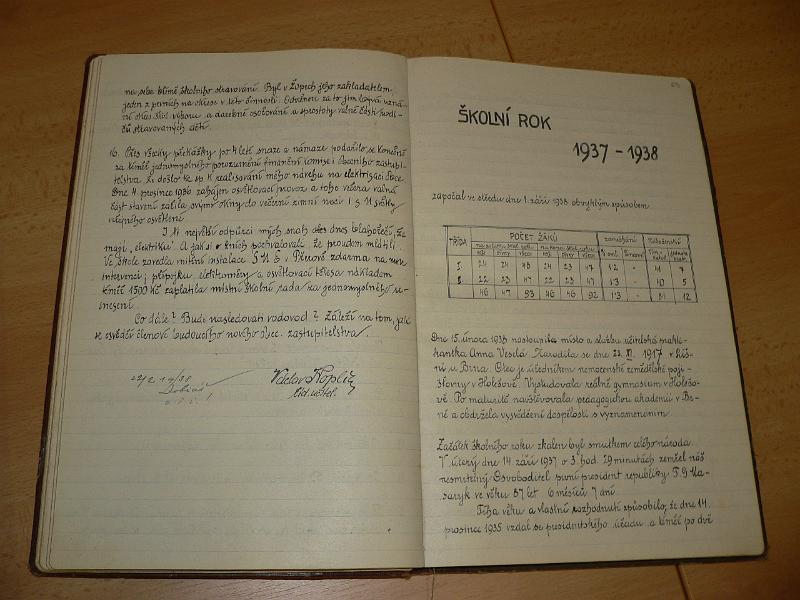 na sebe břímě školního stravování. Byl v Župech jeho zakladatelem,
jeden z prvních na okrese v této činnosti. Odměnou za to jim bývá uzná-
ní okres. škol. výboru a darebné osočování a sprostoty valné části rodi-
čů stravovaných dětí.
16. Přes všecky překážky po 4 leté snaze a námaze podařilo se konečně
za téměř jednomyslného porozumění finanční komise i obecního zastupi-
telstva, že došlo ke sp. k realisování mého návrhu na elektrisaci
Dne 4. prosince 1936 zahájen osvětlovací provoz a toho večera valná
část stavení zalila svými okny do večerní zimní noci i s ulic světly
veřejného osvětlení.
I ti největší odpůrci mých snah dnes blahořečí, že
mají „elektriku". A jak si v žních pochvalovali, že proudem mlátili.
Ve škole zavedla vnitřní instalace v Plzni zdarma na mou
intervenci; přípojku, elektroměry a osvětlovací tělesa nákladem
téměř 1500 Kč zaplatila místní školní rada na jednomyslné u-
snesení.
Co dále? Bude následovati vodovod? Záleží na tom, jak
se osvědčí členové budoucího nového obec. zastupitelstva.
Václav Koplík
říd. učitel.
ŠKOLNÍ ROK
1937 - 1938
započal ve středu dne 1. září 1938 obvyklým způsobem
TŘÍDA POČET ŽÁKŮ zanedbání
na počátku škol. roku na konci škol. roku
hoši dívky všech hoši dívky všech
I. 24 24 48 24 23 47 1·2 - 41 7
II. 22 23 45 22 23 45 1·3 - 40 5
46 47 93 46 46 92 1·3 - 81 12
Dne 15. února 1938 nastoupila místo a službu učitelská prakti-
kantka Anna Veselá. Narodila se dne 22. XI. 1917 v Líš-
ni u Brna. Otec je úředníkem nemocenské zemědělské poji-
šťovny v Holešově. Vystudovala reálné gymnasium v Holešo-
vě. Po maturitě navštěvovala pedagogickou akademii v Br-
ně a obdržela vysvědčení dospělosti s vyznamenáním.
Začátek školního roku zkalen byl smutkem celého národa.
V úterý dne 14. září 1937 o 3. hod. 29 minutách zemřel náš
nesmrtelný Osvoboditel první president republiky T. G. Ma-
saryk ve věku 87 let 6 měsíců 7 dní.
Tíha věku a vlastní rozhodnutí způsobilo, že dne 14.
prosince 1935 vzdal se presidentského úřadu a téměř po dvě